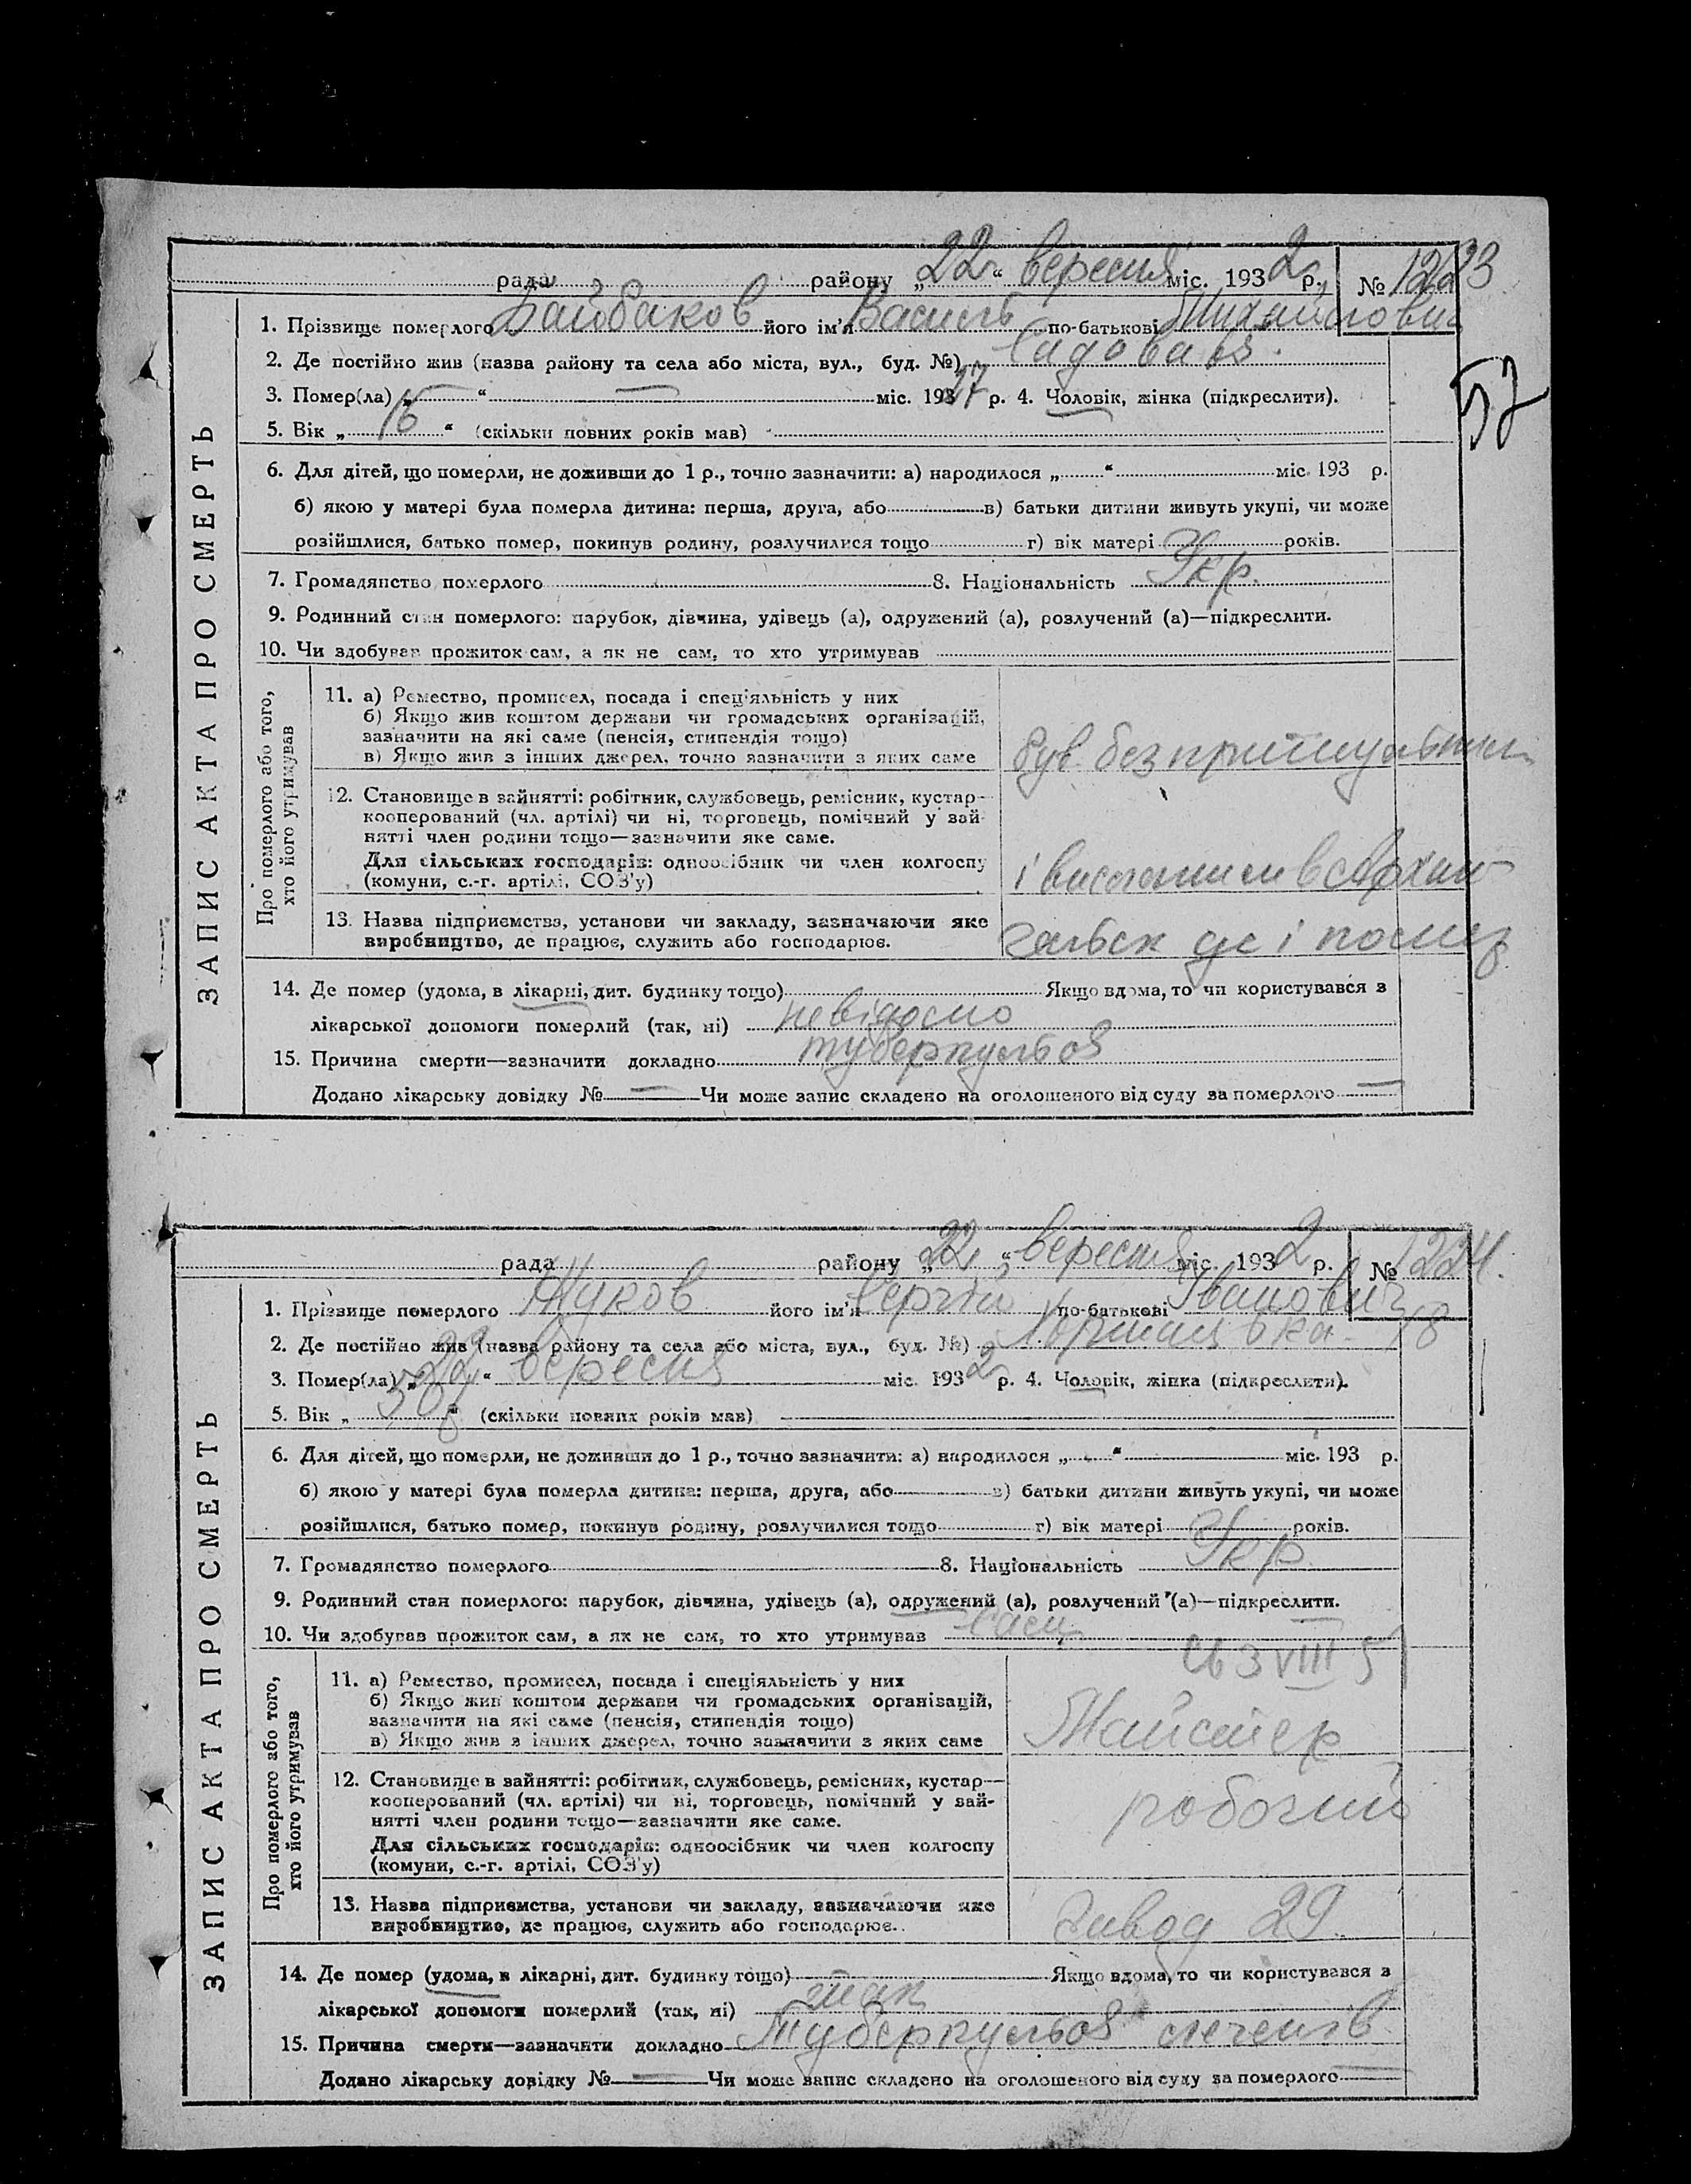 рада району „22“ вересня міс. 1932 р. № 1223
1. Прізвище померлого Байбаков його ім'я Василь по-батькові Михайлович
2. Де постійно жив (назва району та села або міста, вул., буд. №) Садова
57
3. Помер(ла) „ “ — міс. 193 р. 4. Чоловік, жінка (підкреслити).
5. Вік „ “ (скільки повних років мав)
6. Для дітей, що померли, не доживши до 1 р., точно зазначити: а) народилося „ “ міс. 193 р.
б) якою у матері була померла дитина: перша, друга, або в) батьки дитини живуть укупі, чи може
розійшлися, батько помер, покинув родину, розлучилися тощо г) вік матері років.
7. Громадянство померлого 8. Національність Укр.
9. Родинний стан померлого: парубок, дівчина, удівець (а), одружений (а), розлучений (а)—підкреслити.
10. Чи здобував прожиток сам, а як не сам, то хто утримував
ЗАПИС АКТА ПРО СМЕРТЬ
Про померлого або того,
хто його утримував
11. а) Ремество, промисел, посада і спеціяльність у них
б) Якщо жив коштом держави чи громадських організацій,
зазначити на які саме (пенсія, стипендія тощо)
в) Якщо жив з інших джерел, точно зазначити з яких саме
був безпритульним
12. Становище в зайнятті: робітник, службовець, ремісник, кустар—
кооперований (чл. артілі) чи ні, торговець, помічний у зай-
нятті член родини тощо—зазначити яке саме.
Для сільських господарів: одноосібник чи член колгоспу
(комуни, с.-г. артілі, СОЗ'у)
і висланий в Архан
13. Назва підприємства, установи чи закладу, зазначаючи яке
виробництво, де працює, служить або господарює.
гальск де і помер
14. Де помер (удома, в лікарні, дит. будинку тощо) Якщо вдома, то чи користувався з
лікарської допомоги померлий (так, ні) невідомо
15. Причина смерти—зазначити докладно туберкульоз
Додано лікарську довідку № — Чи може запис складено на оголошеного від суду за померлого —
рада району „22“ вересня міс. 1932 р. № 1224.
1. Прізвище померлого Жуков його ім'я Сергій по-батькові Іванович
2. Де постійно жив (назва району та села або міста, вул., буд. №) 18
3. Помер(ла) „22“ вересня міс. 1932 р. 4. Чоловік, жінка (підкреслити).
5. Вік „ “ (скільки повних років мав)
6. Для дітей, що померли, не доживши до 1 р., точно зазначити: а) народилося „ “ міс. 193 р.
б) якою у матері була померла дитина: перша, друга, або в) батьки дитини живуть укупі, чи може
розійшлися, батько помер, покинув родину, розлучилися тощо г) вік матері років.
7. Громадянство померлого 8. Національність Укр
9. Родинний стан померлого: парубок, дівчина, удівець (а), одружений (а), розлучений (а)—підкреслити.
10. Чи здобував прожиток сам, а як не сам, то хто утримував сам
ЗАПИС АКТА ПРО СМЕРТЬ
Про померлого або того,
хто його утримував
11. а) Ремество, промисел, посада і спеціяльність у них
б) Якщо жив коштом держави чи громадських організацій,
зазначити на які саме (пенсія, стипендія тощо)
в) Якщо жив з інших джерел, точно зазначити з яких саме
VIII 5
Майстер
12. Становище в зайнятті: робітник, службовець, ремісник, кустар—
кооперований (чл. артілі) чи ні, торговець, помічний у зай-
нятті член родини тощо—зазначити яке саме.
Для сільських господарів: одноосібник чи член колгоспу
(комуни, с.-г. артілі, СОЗ'у)
робочий
13. Назва підприємства, установи чи закладу, зазначаючи яке
виробництво, де працює, служить або господарює.
Завод 29
14. Де помер (удома, в лікарні, дит. будинку тощо) Якщо вдома, то чи користувався з
лікарської допомоги померлий (так, ні) так
15. Причина смерти—зазначити докладно Туберкульоз легенів
Додано лікарську довідку № — Чи може запис складено на оголошеного від суду за померлого —